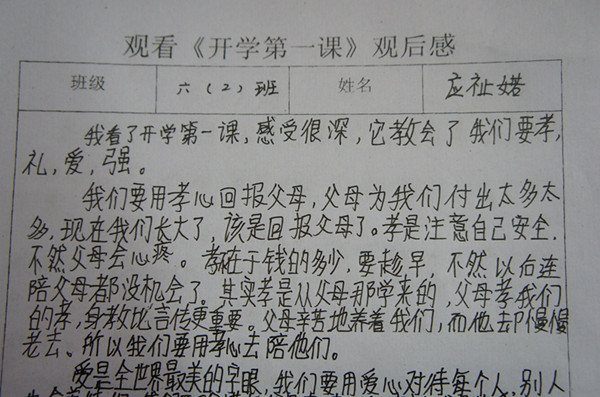 观看《开学第一课》观后感
班级 六（2）班 姓名 应祉婼
我看了开学第一课，感受很深，它教会了我们要孝，
礼，爱，强。
我们要用孝心回报父母，父母为我们付出太多太
多，现在我们长大了，该是回报父母了。孝是注意自己安全，
不然父母会心疼。孝在于钱的多少，要趁早，不然以后连
陪父母都没机会了。其实孝是从父母那学来的，父母孝我们
的孝，身教比言传更重要。父母辛苦地养着我们，而他去却慢慢
老去、所以我们要用孝心去陪他们。
爱是全世界最美的字眼，我们要用爱心对待每个人，别人